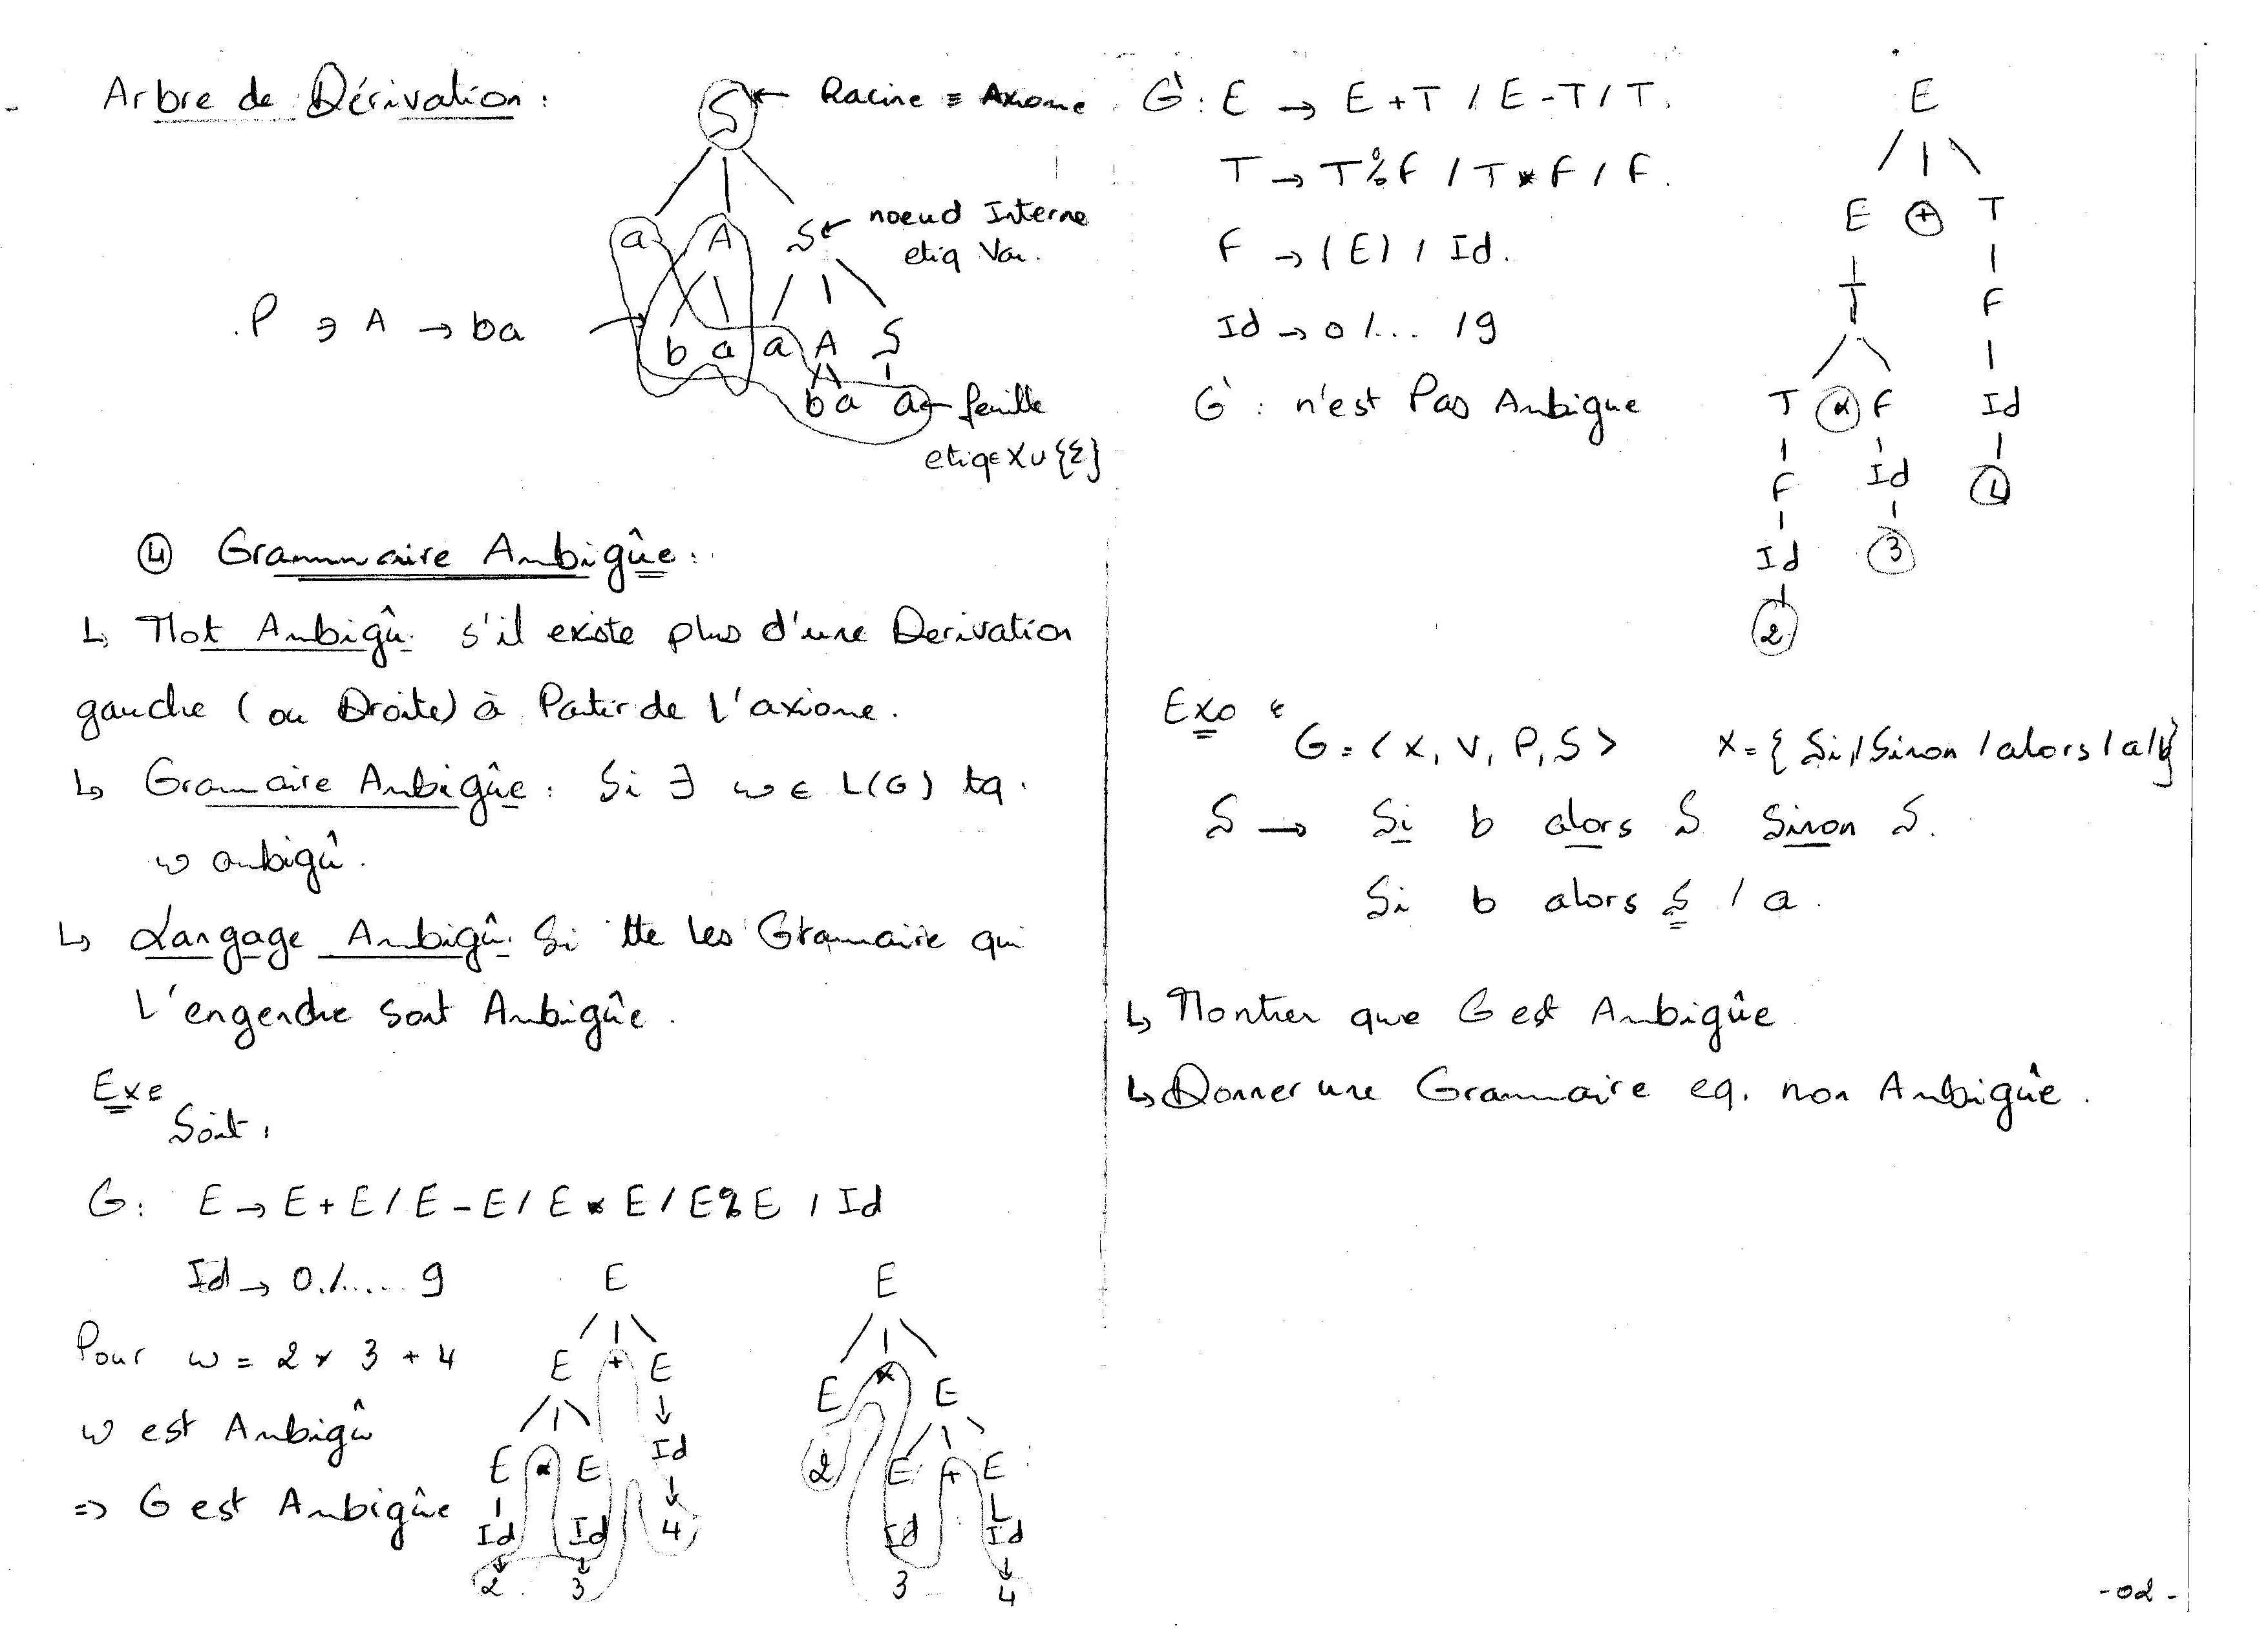 Arbre de Dérivation :
S ← Racine ≡ Axiome
a A S ← noeud Interne
etiq Var.
P ∋ A → ba
b a a A S
b a a ← feuille
etiq ∈ X ∪ {Σ}
④ Grammaire Ambigûe :
↳ Mot Ambigû. s'il existe plus d'une Derivation
gauche (ou Droite) à Partir de l'axiome.
↳ Gramaire Ambigûe : Si ∃ w ∈ L(G) tq.
w ambigû.
↳ Langage Ambigû. Si tte les Gramaire qui
L'engendre sont Ambigûe.
Exe
Soit :
G : E → E + E / E - E / E * E / E % E / Id
Id → 0 /..... 9
Pour w = 2 * 3 + 4
w est Ambigû
=> G est Ambigûe
E
E + E
E * E Id
Id Id 4
2 3
E
E * E
2 E + E
Id Id
3 4
G' : E → E + T / E - T / T.
T → T % F / T * F / F.
F → (E) / Id.
Id → 0 /... / 9
G' : n'est Pas Ambigue
E
E + T
T F
T * F Id
F Id 1
Id 3
2
Exo
G = < X, V, P, S > X = { Si / Sinon / alors / a / b }
S → Si b alors S Sinon S.
Si b alors S / a.
↳ Montrer que G est Ambigûe
↳ Donner une Grammaire eq. non Ambigûe.
- 02 -